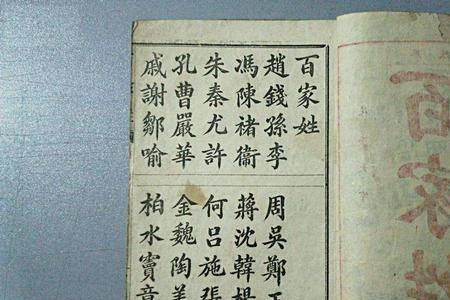 百家姓
百家姓
趙錢孫李 周吳鄭王
馮陳褚衛 蔣沈韓楊
朱秦尤許 何呂施張
孔曹嚴華 金魏陶姜
戚謝鄒喻 柏水竇章